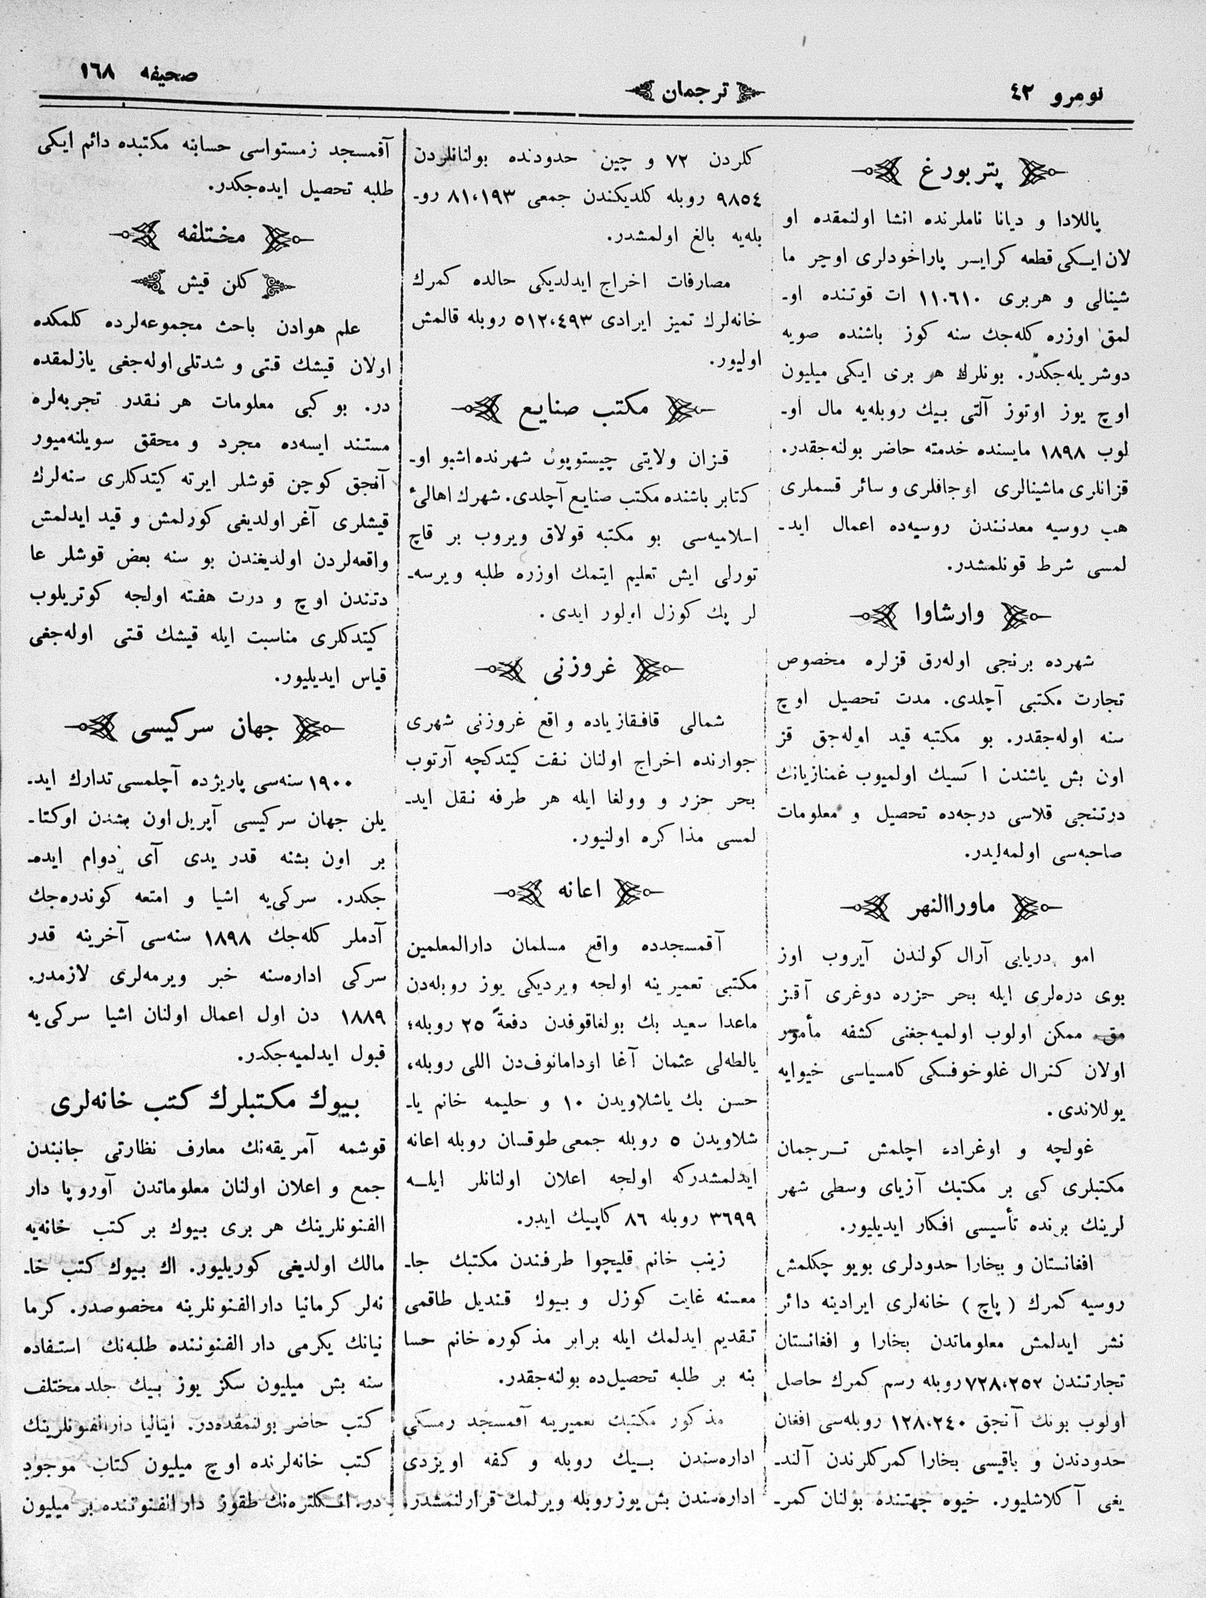 نومرو ٤٢
ترجمان
صحیفه ١٦٨
پتربورغ
پاللادا و دیانا ناملرنده انشا اولنمقده او
لان ایکی قطعه کرایسر پاراخودلری اوچر ما
شینالی و هربری ١١٠٦١٠ ات قوتنده او۔
لمق اوزره کله‌جك سنه کوز باشنده صویه
دوشریله‌جکدر. بونلرك هر بری ایکی میلیون
اوچ یوز اوتوز آلتی بیك روبله‌یه مال او۔
لوب ١٨٩٨ مایسنده خدمته حاضر بولنه‌جقدر.
قزانلری ماشینالری اوجاقلری و سائر قسملری
هب روسیه معدنندن روسیه‌ده اعمال اید۔
لمسی شرط قونلمشدر.
وارشاوا
شهرده برنجی اوله‌رق قزلره مخصوص
تجارت مکتبی آچلدی. مدت تحصیل اوچ
سنه اوله‌جقدر. بو مکتبه قید اوله‌جق قز
اون بش یاشندن اکسیك اولمیوب غمنازیانك
درتنجی قلاسی درجه‌ده تحصیل و معلومات
صاحبه‌سی اولمه‌لیدر.
ماوراالنهر
امو دریایی آرال کولندن آیروب اوز
بوی دره‌لری ایله بحر حزره دوغری آقیز
مق ممکن اولوب اولمیه‌جغنی کشفه مأمور
اولان کنرال غلوخوفسکی کامسیاسی خیوایه
یوللاندی.
غولجه و اوغراده اچلمش ترجمان
مکتبلری کبی بر مکتبك آزیای وسطی شهر
لرینك برنده تأسیسی افکار ایدیلیور.
افغانستان و بخارا حدودلری بویو چکلمش
روسیه کمرك (پاچ) خانه‌لری ایرادینه دائر
نشر ایدلمش معلوماتدن بخارا و افغانستان
تجارتندن ٧٢٨،٢٥٢ روبله رسم کمرك حاصل
اولوب بونك آنجق ١٢٨،٢٤٠ روبله‌سی افغان
حدودندن و باقیسی بخارا کمرکلرندن آلند۔
یغی آکلاشلیور. خیوه جهتنده بولنان کمر۔
کلردن ٧٢ و چین حدودنده بولنانلردن
٩٨٥٤ روبله کلدیکندن جمعی ٨١،١٩٣ رو۔
بله‌یه بالغ اولمشدر.
مصارفات اخراج ایدلدیکی حالده کمرك
خانه‌لرك تمیز ایرادی ٥١٢،٤٩٣ روبله قالمش
اولیور.
مکتب صنایع
قزان ولایتی چیستوپول شهرنده اشبو او۔
کتابر باشنده مکتب صنایع آچلدی. شهرك اهالیٔ
اسلامیه‌سی بو مکتبه قولاق ویروب بر قاچ
تورلی ایش تعلیم ایتمك اوزره طلبه ویرسه۔
لر پك کوزل اولور ایدی.
غروزنی
شمالی قافقازیاده واقع غروزنی شهری
جوارنده اخراج اولنان نفت کیتدکچه آرتوب
بحر حزر و وولغا ایله هر طرفه نقل اید۔
لمسی مذاکره اولنیور.
اعانه
آقمسجدده واقع مسلمان دارالمعلمین
مکتبی تعمیرینه اولجه ویردیکی یوز روبله‌دن
ماعدا سعید بك بولغاقوفدن دفعةً ٢٥ روبله؛
یالطه‌لی عثمان آغا اودامانوف‌دن اللی روبله،
حسن بك یاشلاویدن ١٠ و حلیمه خانم یا۔
شلاویدن ٥ روبله جمعی طوقسان روبله اعانه
ایدلمشدرکه اولجه اعلان اولنانلر ایلـه
٣٦٩٩ روبله ٨٦ کاپیك ایدر.
زینب خانم قلیچوا طرفندن مکتبك جا۔
معسنه غایت کوزل و بیوك قندیل طاقمی
تقدیم ایدلمك ایله برابر مذکوره خانم حسا
بنه بر طلبه تحصیل‌ده بولنه‌جقدر.
مذکور مکتبك تعمیرینه آقمسجد رمسکی
اداره‌سندن بیك روبله و کفه اویزدی
اداره‌سندن بش یوز روبله ویرلمك قرارلنمشدر.
آقمسجد زمستواسی حسابنه مکتبده دائم ایکی
طلبه تحصیل ایده‌جکدر.
مختلفه
کلن قیش
علم هوادن باحث مجموعه‌لرده کلمکده
اولان قیشك قتی و شدتلی اوله‌جغی یازلمقده
در. بو کبی معلومات هر نقدر تجربه‌لره
مستند ایسه‌ده مجرد و محقق سویلنه‌میور
آنجق کوچن قوشلر ایرته کیتدکلری سنه‌لرك
قیشلری آغر اولدیغی کورلمش و قید ایدلمش
واقعه‌لردن اولدیغندن بو سنه بعض قوشلر عا
دتندن اوچ و درت هفته اولجه کوتریلوب
کیتدکلری مناسبت ایله قیشك قتی اوله‌جغی
قیاس ایدیلیور.
جهان سرکیسی
١٩٠٠ سنه‌سی پاریژده آچلمسی تدارك اید۔
یلن جهان سرکیسی آپریل اون بشندن اوکتا۔
بر اون بشنه قدر یدی آی دوام ایده۔
جکدر. سرکی‌یه اشیا و امتعه کوندره‌جك
آدملر کله‌جك ١٨٩٨ سنه‌سی آخرینه قدر
سرکی اداره‌سنه خبر ویرمه‌لری لازمدر.
١٨٨٩ دن اول اعمال اولنان اشیا سرکی‌یه
قبول ایدلمیه‌جکدر.
بیوك مکتبلرك کتب خانه‌لری
قوشمه آمریقه‌نك معارف نظارتی جانبندن
جمع و اعلان اولنان معلوماتدن آوروپا دار
الفنونلرینك هر بری بیوك بر کتب خانه‌یه
مالك اولدیغی کوریلیور. اك بیوك کتب خا۔
نه‌لر کرمانیا دارالفنونلرینه مخصوصدر. کرما
نیانك یکرمی دار الفنوننده طلبه‌نك استفاده
سنه بش میلیون سکز یوز بیك جلد مختلف
کتب حاضر بولنمقده‌در. ایتالیا دارالفنونلرینك
کتب خانه‌لرنده اوچ میلیون کتاب موجود
در. انکلتره‌نك طقوز دار الفنوننده بر میلیون